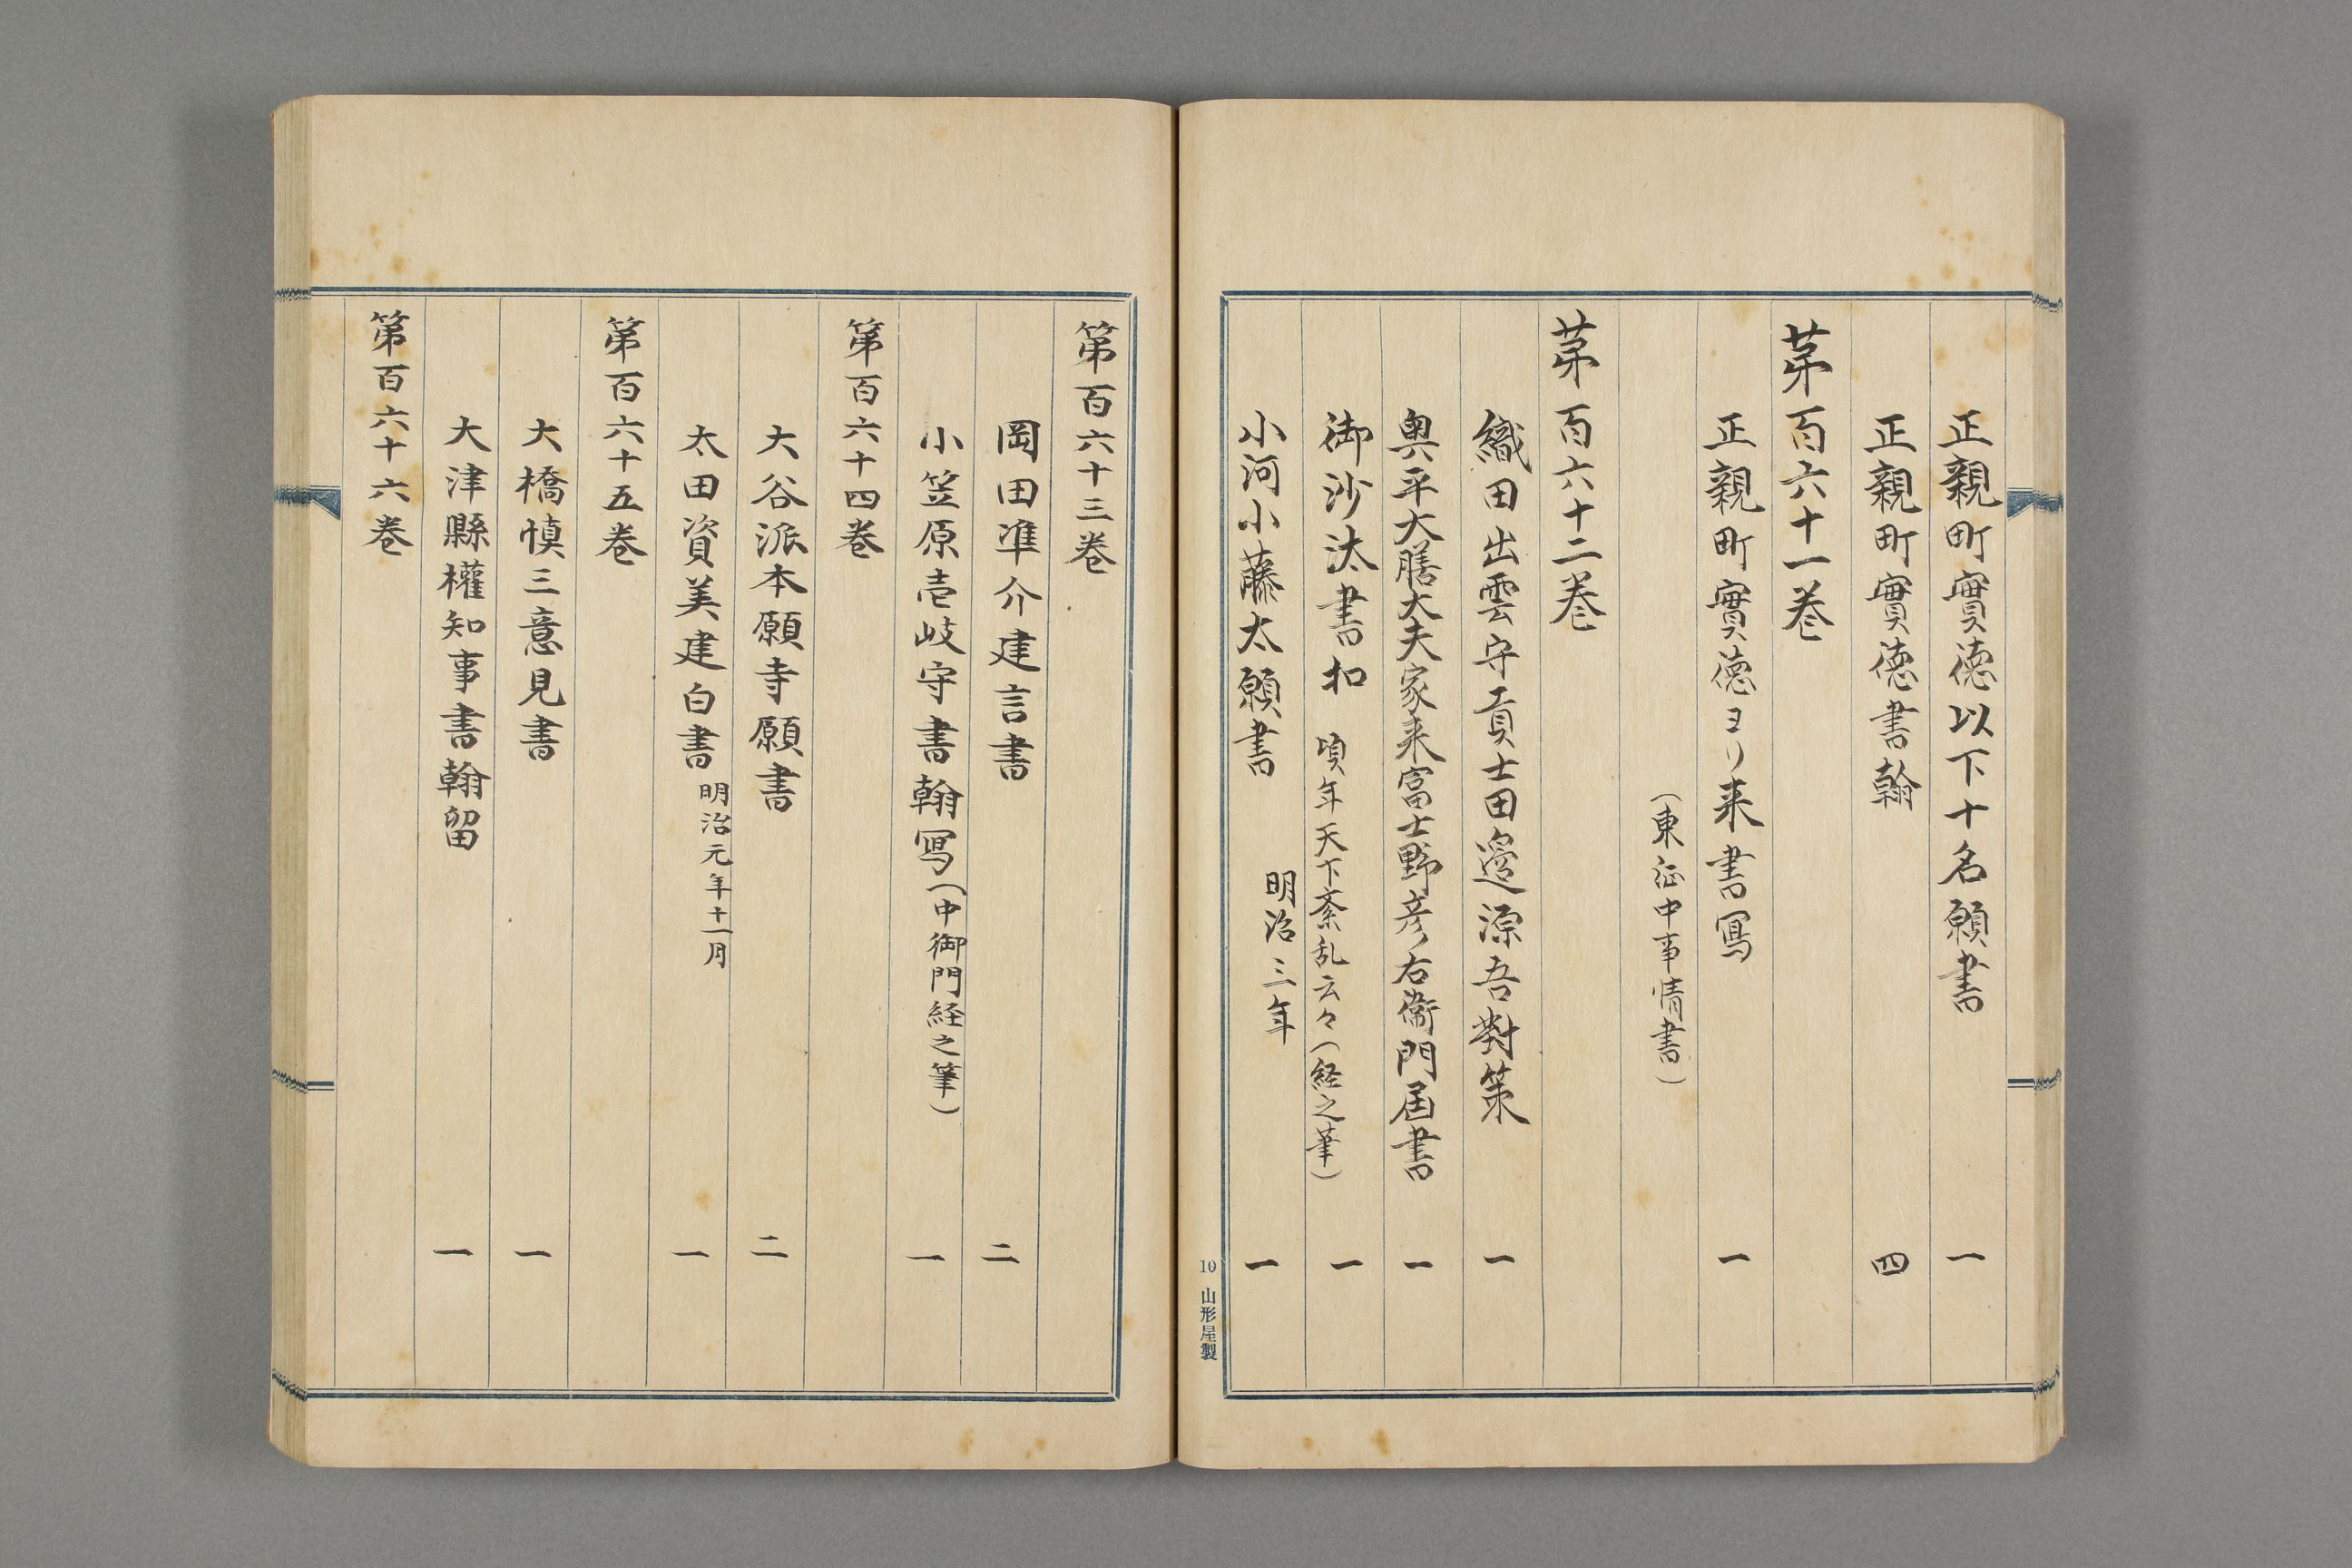 正親町實徳以下十名願書 一
正親町實徳書翰 四
苐百六十一巻
正親町實徳ヨリ来書寫 一
（東征中事情書）
苐百六十二巻
織田出雲守貢士田邉源吾對策 一
奥平大膳大夫家来富士野彦右衛門届書 一
御沙汰書扣 頃年天下紊乱云々（経之筆） 一
小河小藤太願書 明治三年 一
10 山形屋製
第百六十三巻
岡田凖介建言書 二
小笠原壱岐守書翰冩（中御門経之筆） 一
第百六十四巻
大谷派本願寺願書 二
太田資美建白書 明治元年十一月 一
第百六十五巻
大橋慎三意見書 一
大津縣權知事書翰留 一
第百六十六巻